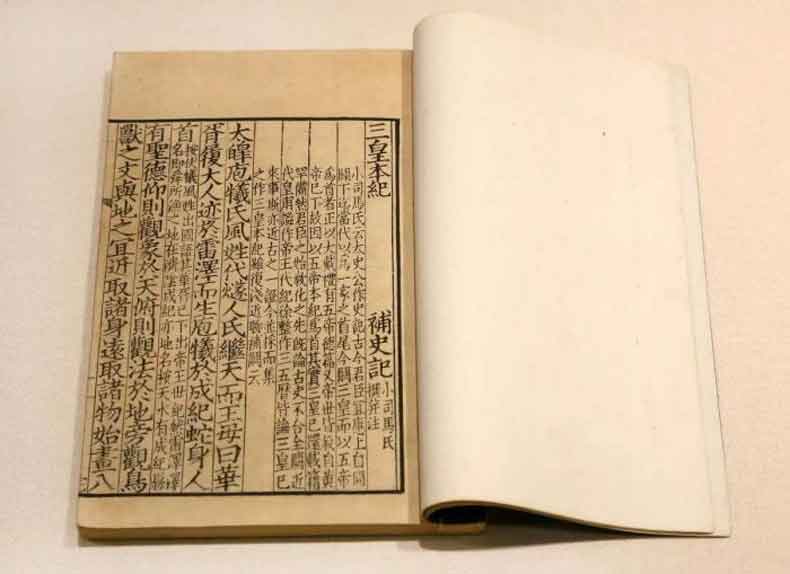 三皇本紀　補史記　小司馬氏
撰并注
小司馬氏云太史公作史記古今君臣宜應上自開
闢下迄當代以為一家之首尾今闕三皇而以五帝
為首者正以大戴禮有五帝德篇又帝世皆敘自黃
帝已下故因以五帝本紀為首其實三皇已還載籍
罕備然君臣之始教化之先既論古史不合全闕近
代皇甫謐作帝王代紀徐整作三五曆皆論三皇已
來事斯亦近古之一證今並採而集
之作三皇本紀雖復淺近聊補闕云
太皞庖犧氏風姓代燧人氏繼天而王母曰華
胥履大人迹於雷澤而生庖犧於成紀蛇身人
首
按伏犧風姓出國語其華胥已下出帝王世紀然雷澤澤
名即舜所漁之地在濟陰成紀亦地名按天水有成紀縣
有聖德仰則觀象於天俯則觀法於地旁觀鳥
獸之文與地之宜近取諸身遠取諸物始畫八